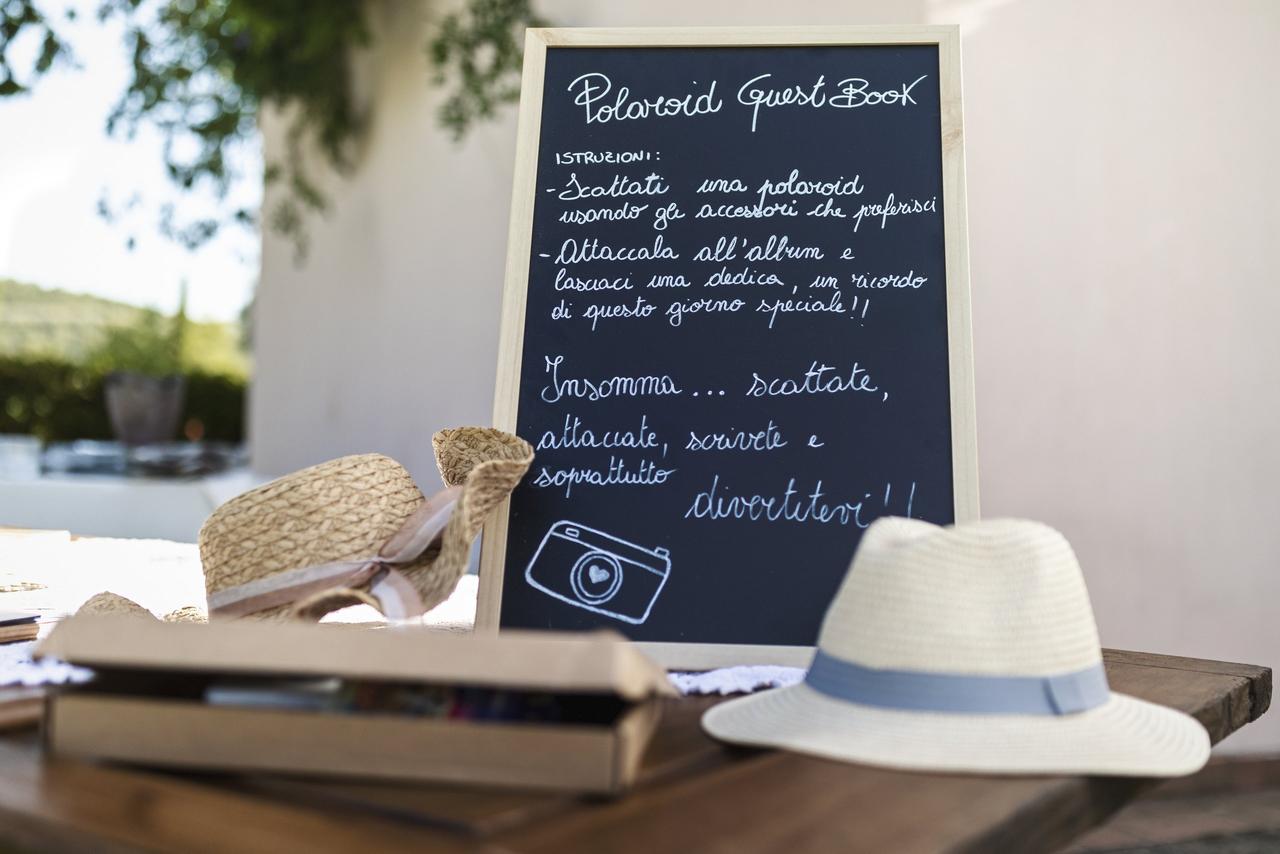 Polaroid Guest Book
ISTRUZIONI:
- Scattati una polaroid
usando gli accessori che preferisci
- Attaccala all'album e
lasciaci una dedica, un ricordo
di questo giorno speciale!!
Insomma ... scattate,
attaccate, scrivete e
soprattutto
divertitevi!!